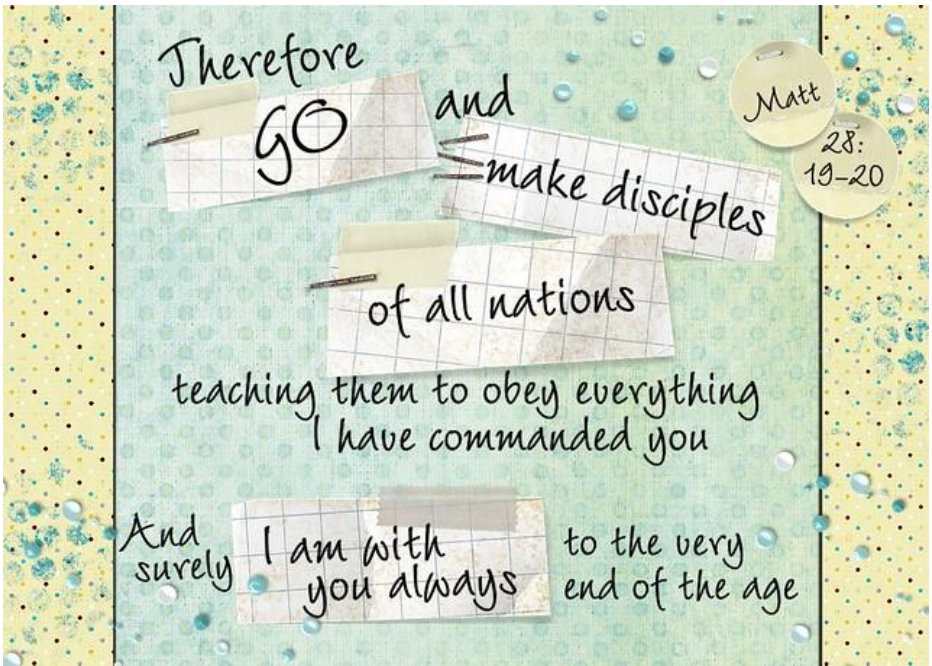 Therefore
GO and
make disciples
of all nations
teaching them to obey everything
I have commanded you
And
surely
I am with
you always
to the very
end of the age
Matt
28:
19-20